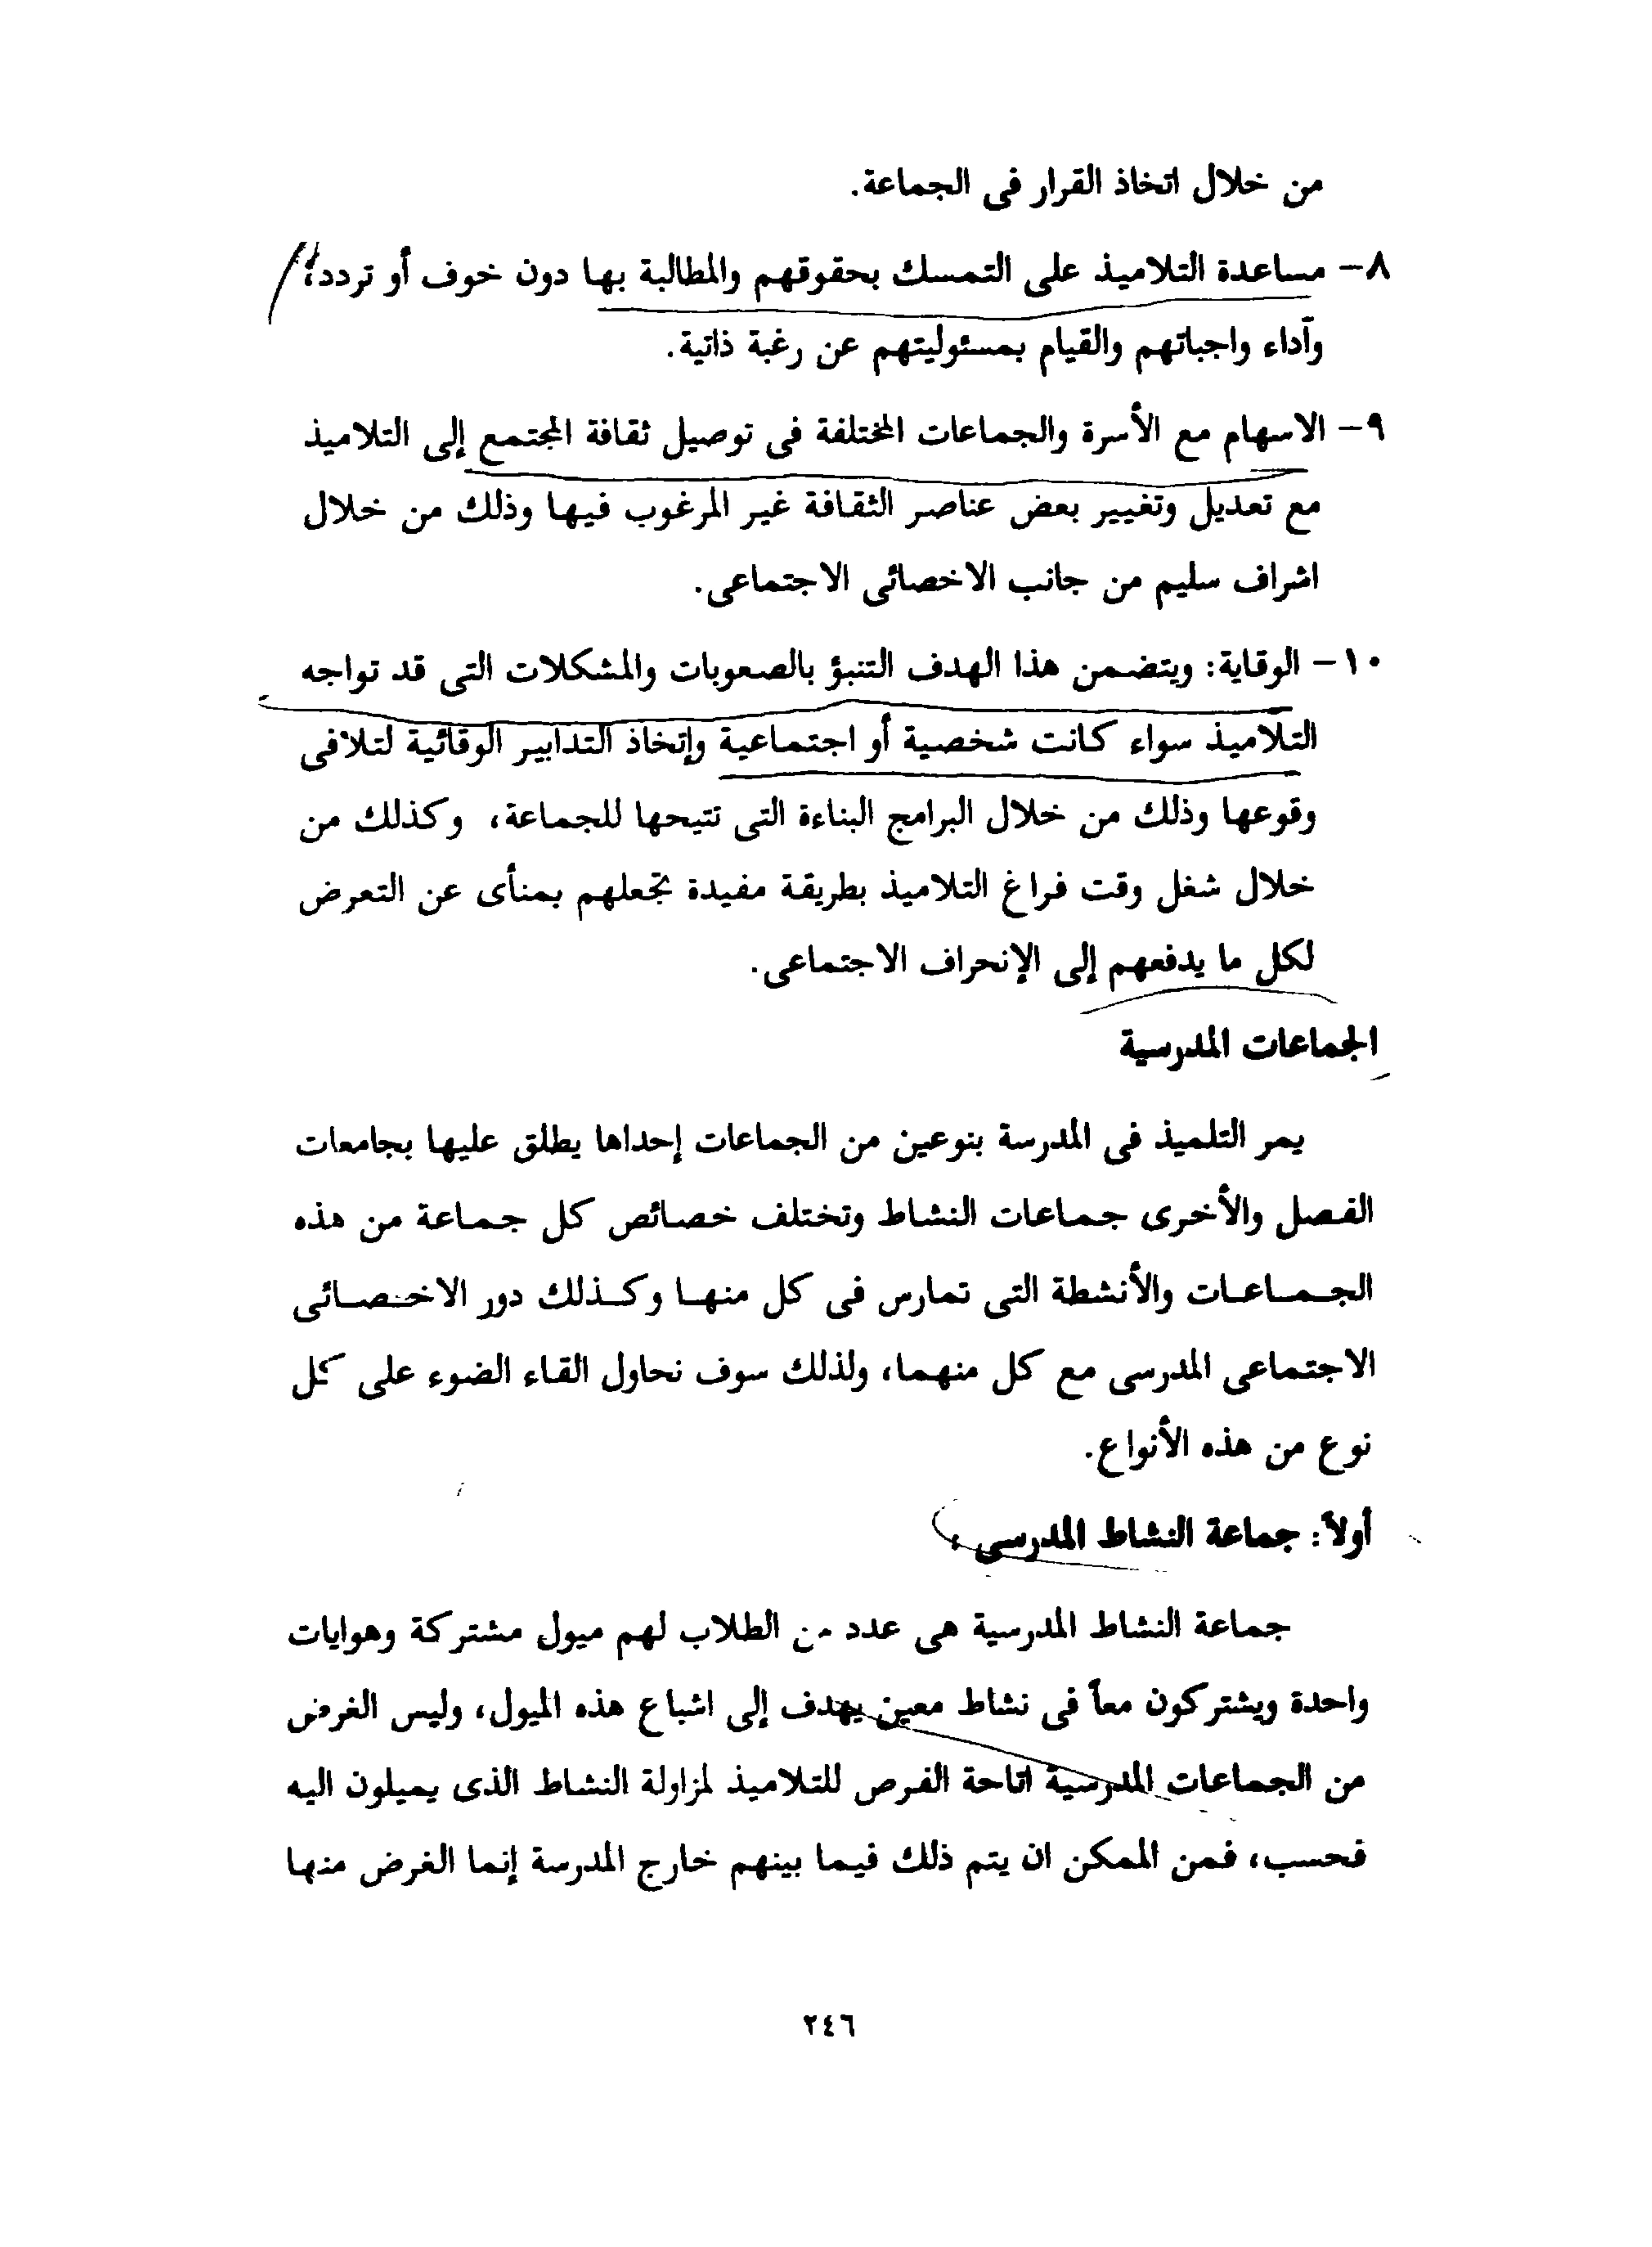 من خلال اتخاذ القرار فى الجماعة.
٨- مساعدة التلاميذ على التمسك بحقوقهم والمطالبة بها دون خوف أو تردد،
وآداء واجباتهم والقيام بمسئوليتهم عن رغبة ذاتية.
٩- الاسهام مع الأسرة والجماعات المختلفة فى توصيل ثقافة المجتمع إلى التلاميذ
مع تعديل وتغيير بعض عناصر الثقافة غير المرغوب فيها وذلك من خلال
اشراف سليم من جانب الاخصائى الاجتماعى.
١٠- الوقاية: ويتضمن هذا الهدف التنبؤ بالصعوبات والمشكلات التى قد تواجه
التلاميذ سواء كانت شخصية أو اجتماعية وإتخاذ التدابير الوقائية لتلافى
وقوعها وذلك من خلال البرامج البناءة التى تتيحها للجماعة، وكذلك من
خلال شغل وقت فراغ التلاميذ بطريقة مفيدة تجعلهم بمنأى عن التعرض
لكل ما يدفعهم إلى الإنحراف الاجتماعى.
الجماعات المدرسية
يمر التلميذ فى المدرسة بنوعين من الجماعات إحداها يطلق عليها بجامعات
الفصل والأخرى جماعات النشاط وتختلف خصائص كل جماعة من هذه
الجماعات والأنشطة التى تمارس فى كل منها وكذلك دور الاخصائى
الاجتماعى المدرسى مع كل منهما، ولذلك سوف نحاول القاء الضوء على كل
نوع من هذه الأنواع.
أولاً: جماعة النشاط المدرسى :
جماعة النشاط المدرسية هى عدد من الطلاب لهم ميول مشتركة وهوايات
واحدة ويشتركون معاً فى نشاط معين يهدف إلى اشباع هذه الميول، وليس الغرض
من الجماعات المدرسية اتاحة الفرص للتلاميذ لمزاولة النشاط الذى يميلون اليه
فحسب، فمن الممكن ان يتم ذلك فيما بينهم خارج المدرسة إنما الغرض منها
٢٤٦